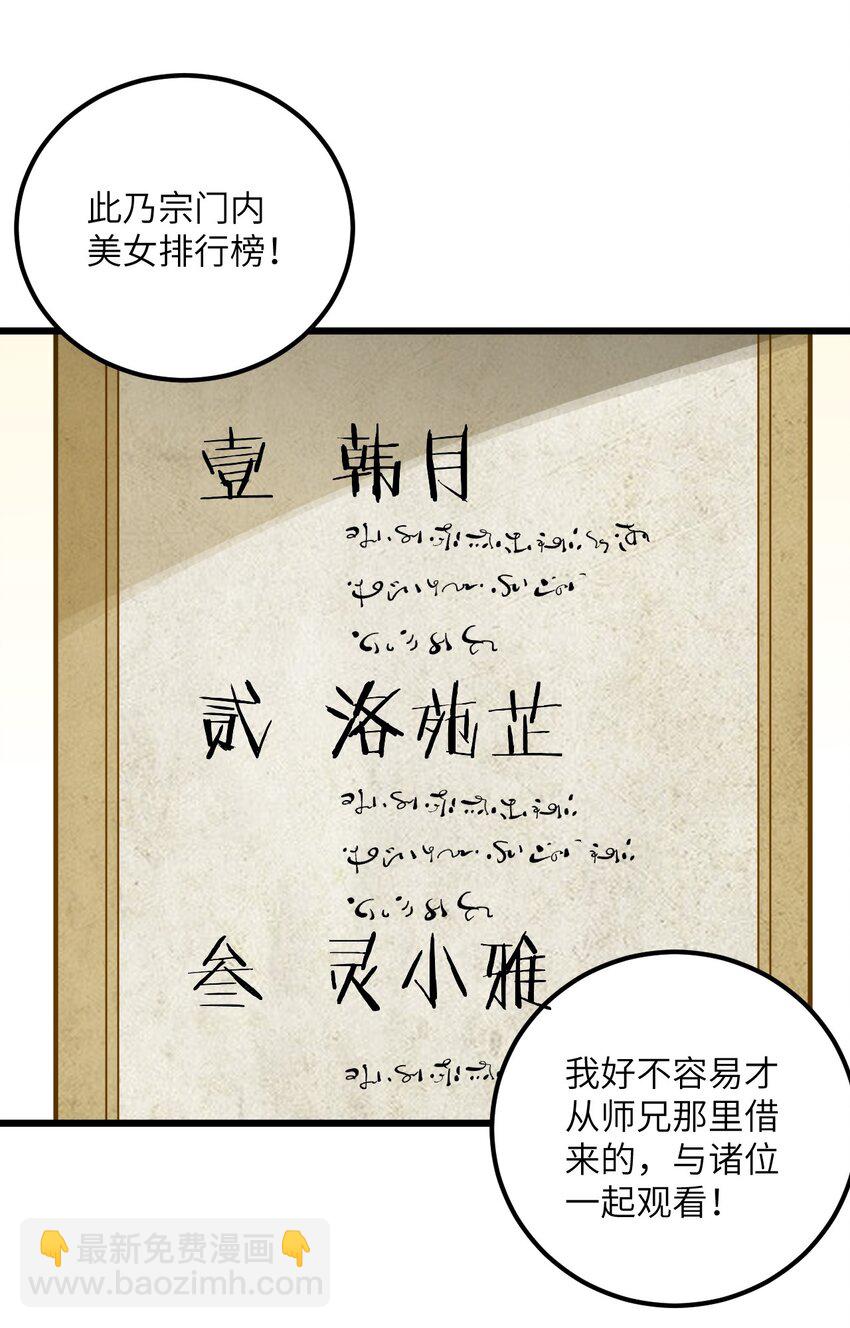 此乃宗门内
美女排行榜！
壹 韩月
贰 洛苑芷
叁 灵小雅
我好不容易才
从师兄那里借
来的，与诸位
一起观看！
最新免费漫画
www.baozimh.com